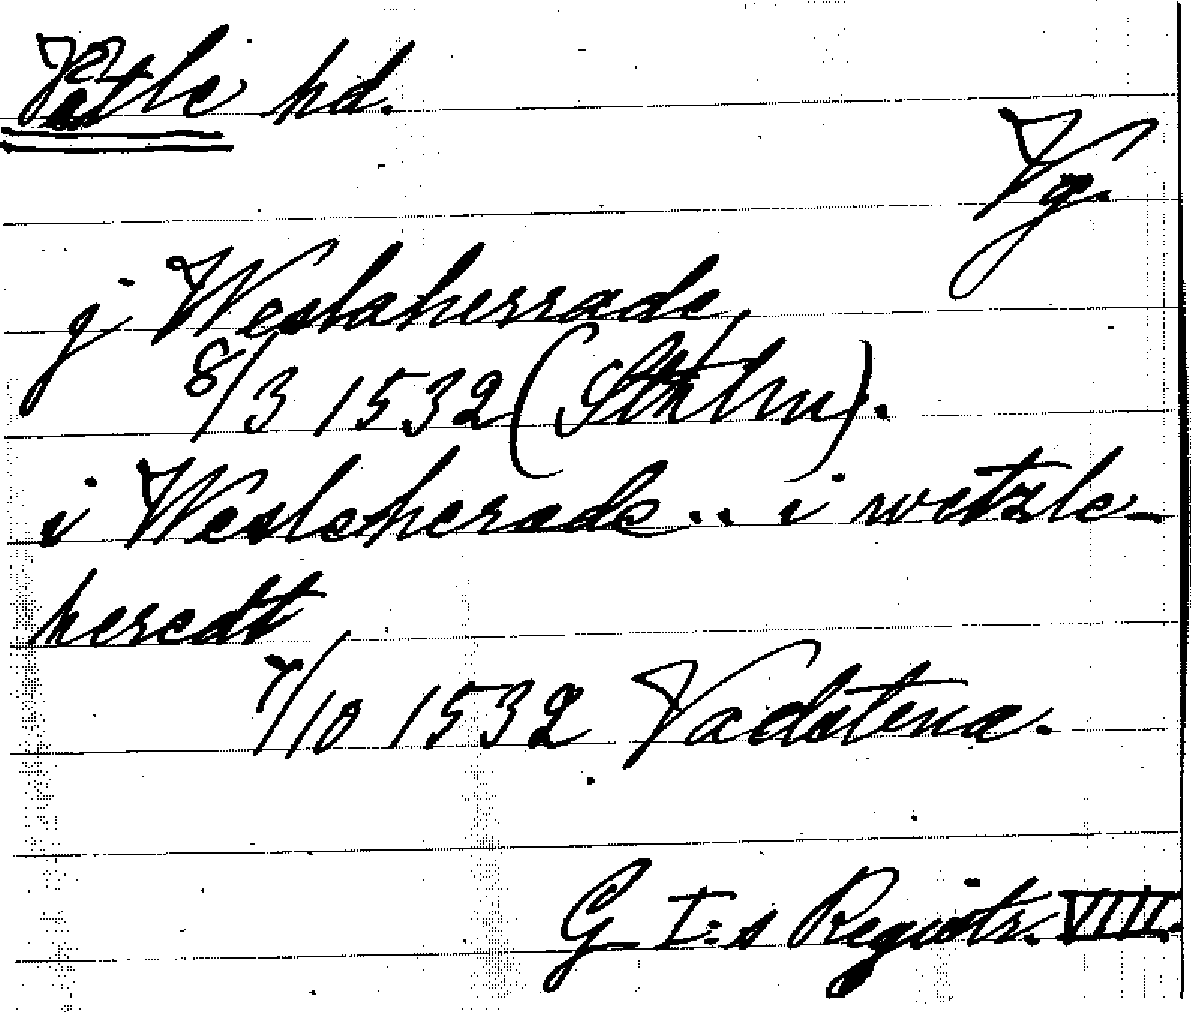 Vätle hd.
Vg.
j Weslaherrade,
8/3 1532 (Sthlm).
i Wesleherade.. i wetzle-
heredt
7/10 1532 Vadstena.
G I:s Registr. VIII.